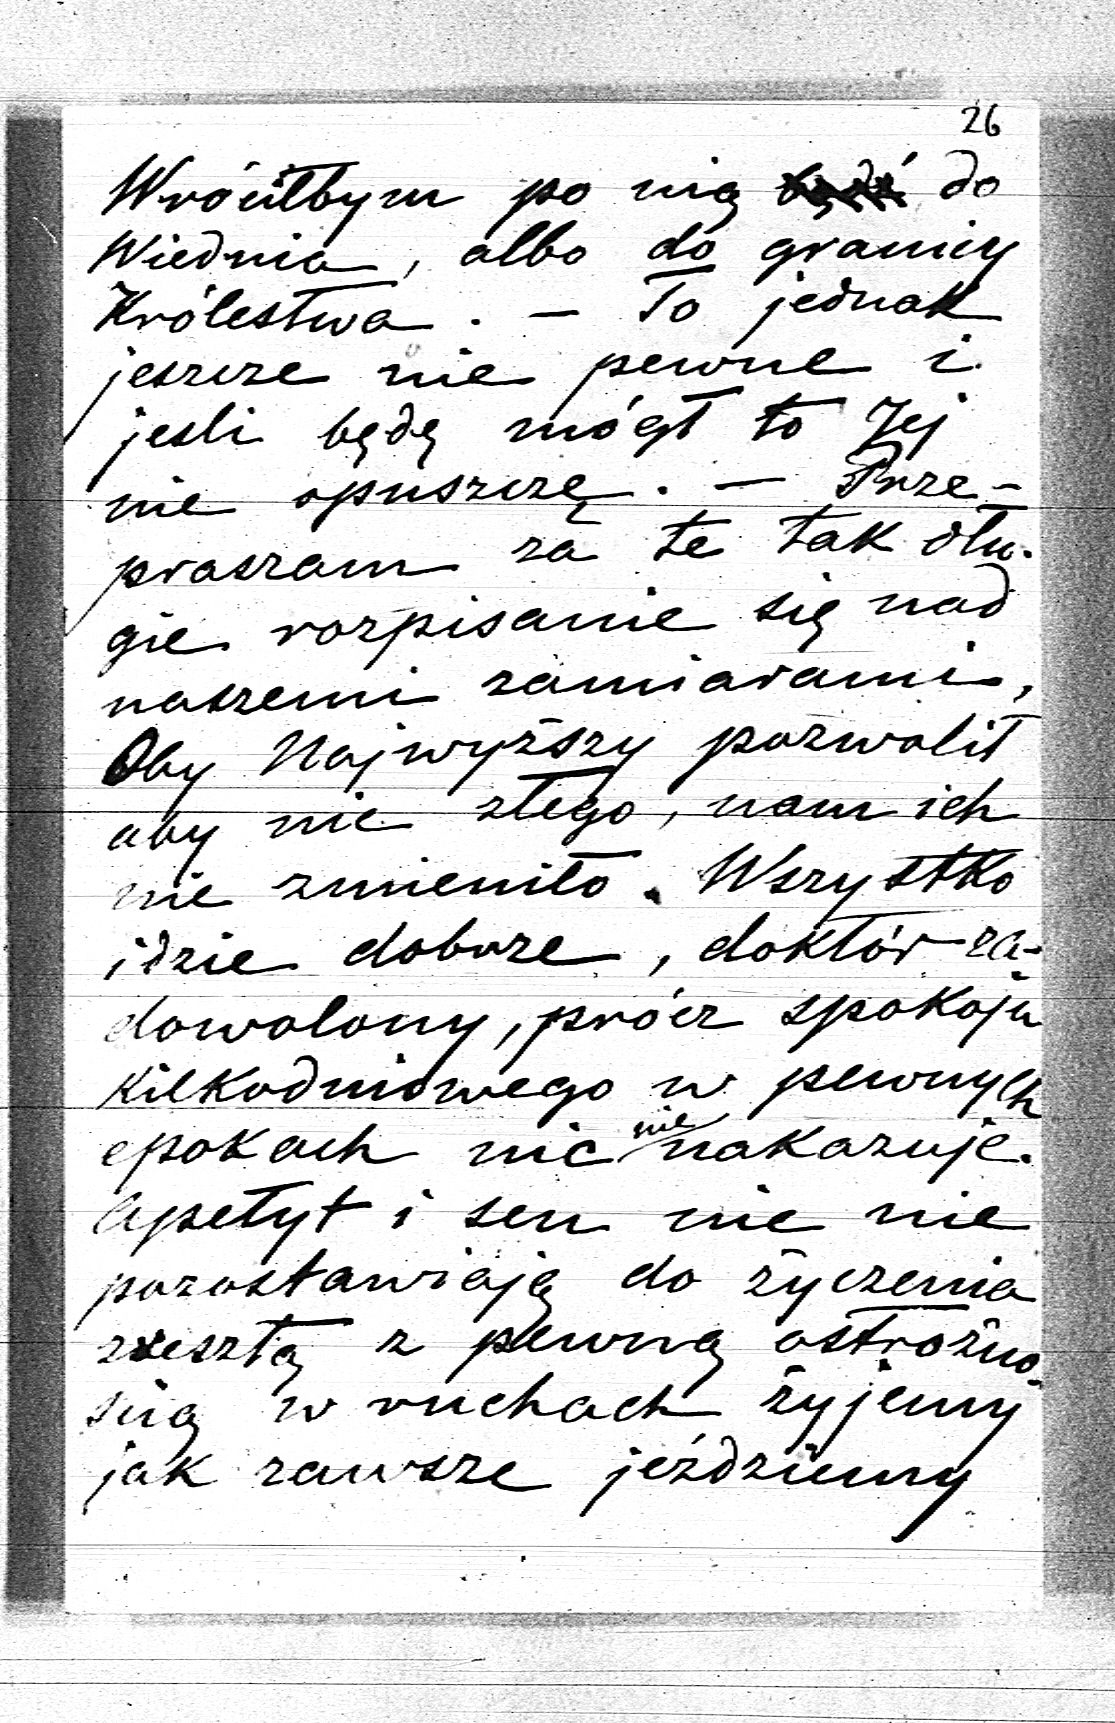 26
Wróciłbym po nią bądź do
Wiednia, albo do granicy
Królestwa. — To jednak
jeszcze nie pewne i
jesli będę mógł to Jej
nie opuszczę. — Prze-
praszam za te tak dłu-
gie rozpisanie się nad
naszemi zamiarami,
Oby Najwyższy pozwolił
aby nic złego, nam ich
nie zmieniło. Wszystko
idzie dobrze, doktór za-
dowolony, prócz spokoju
kilkodniowego w pewnych
epokach nic nie nakazuje.
Apetyt i sen nic nie
pozostawiają do życzenia
zresztą z pewną ostrożno-
scią w ruchach żyjemy
jak zawsze jeździemy